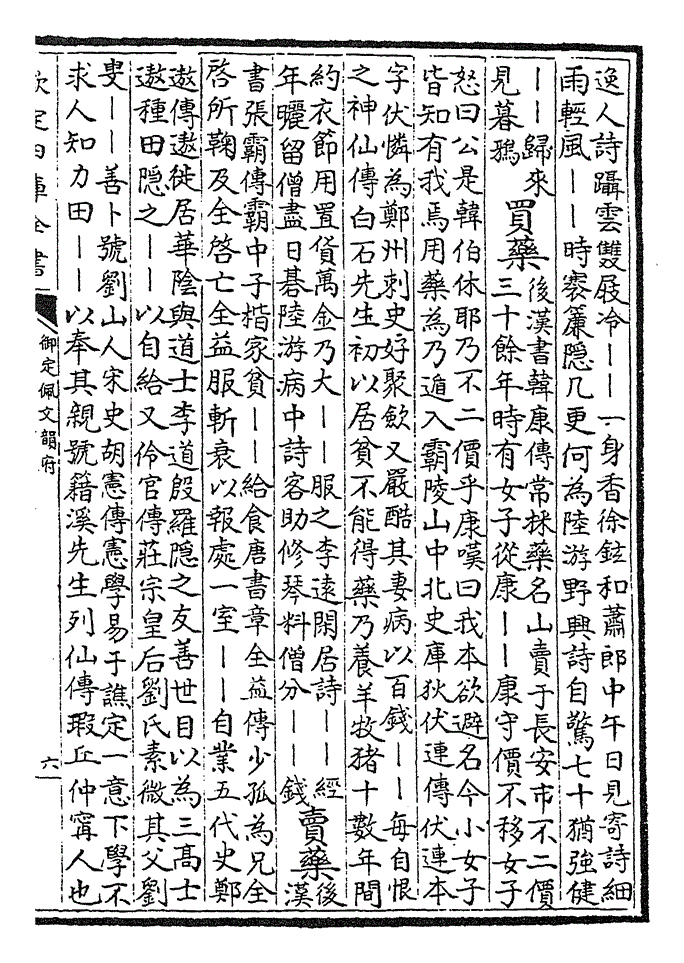 逸人詩躡雲雙屐冷――一身香徐鉉和蕭郎中午日見寄詩細
雨輕風――時褰簾隠几更何為陸游野興詩自驚七十猶強健
――歸來
見暮鴉
買藥
後漢書韓康傳常採藥名山賣于長安市不二價
三十餘年時有女子從康――康守價不移女子
怒曰公是韓伯休耶乃不二價乎康嘆曰我本欲避名今小女子
皆知有我焉用藥為乃遁入霸陵山中北史庫狄伏連傳伏連本
字伏憐為鄭州刺史好聚歛又嚴酷其妻病以百錢――每自恨
之神仙傳白石先生初以居貧不能得藥乃養羊牧猪十數年間
約衣節用置貨萬金乃大――服之李逺閑居詩――經
年曬留僧盡日碁陸游病中詩客助修琴料僧分――錢
賣藥
後
漢
書張霸傳霸中子楷家貧――給食唐書章全益傳少孤為兄全
啓所鞠及全啓亡全益服斬衰以報處一室――自業五代史鄭
遨傳遨徙居華陰與道士李道殷羅隠之友善世目以為三高士
遨種田隠之――以自給又伶官傳莊宗皇后劉氏素微其父劉
叟――善卜號劉山人宋史胡憲傳憲學易于譙定一意下學不
求人知力田――以奉其親號籍溪先生列仙傳瑕丘仲甯人也
欽定四庫全書
御定佩文韻府
六